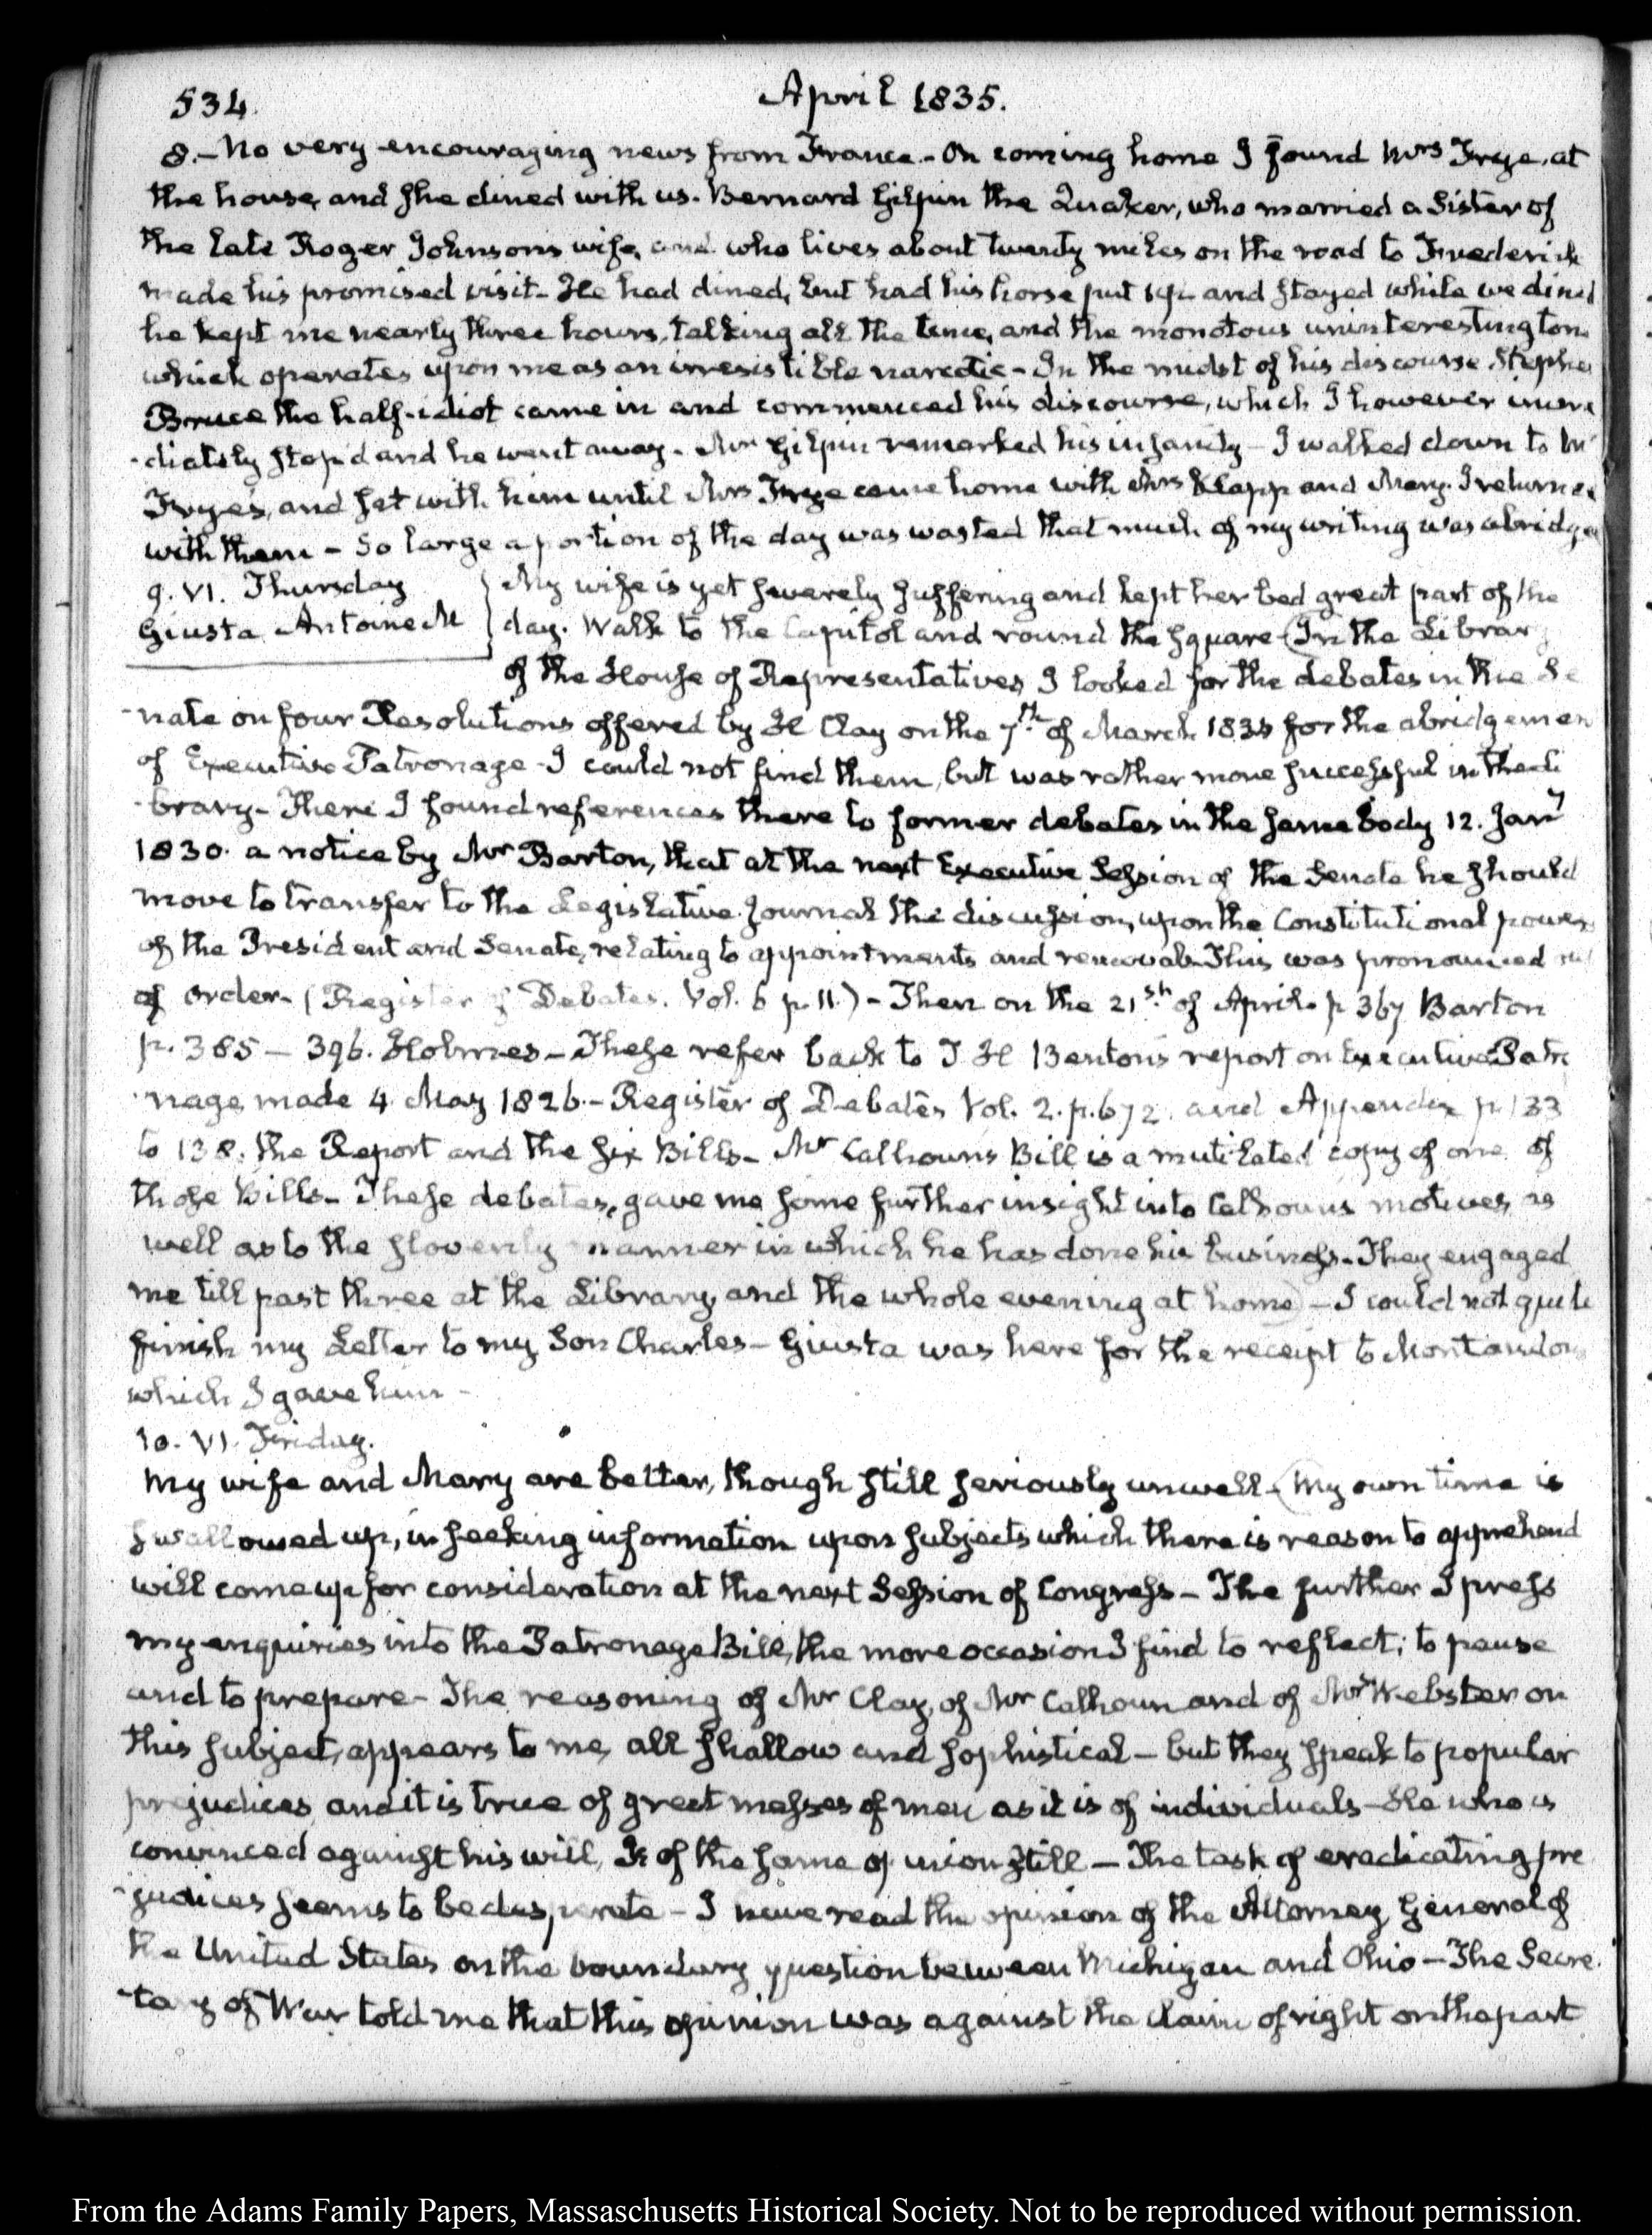 534.
April 1835.
8.— No very encouraging news from France.— On coming home I found Mrs Frye, at
the house, and she dined with us. Bernard Gilpin the Quaker, who married a Sister of
the late Roger Johnson's wife, and who lives about twenty miles on the road to Frederick
made his promised visit— He had dined, but had his horse put up and stayed while we dined
he kept me nearly three hours, talking all the time, and the monotous uninteresting tone
which operates upon me as an irresistible narcotic— In the midst of his discourse Stephe
Bruce the half-idiot came in and commenced his discourse, which I however imme
-diately stop'd and he went away. Mr Gilpin remarked his insanity— I walked down to Mr
Frye's, and sat with him until Mrs Frye came home with Mrs Clapp and Mary. I returned
with them— So large a portion of the day was wasted that much of my writing was abridged
9. VI. Thursday
Giusta Antoine M
My wife is yet severely suffering and kept her bed great part of the
day. Walk to the Capitol and round the square (In the Library
of the House of Representatives I looked for the debates in the Se
-nate on four Resolutions offered by H Clay on the 7th of March 1834 for the abridgemen
of Executive Patronage— I could not find them, but was rather more successful in the Li
-brary— There I found references there to former debates in the same body 12. Jany
1830. a notice by Mr Barton, that at the next Executive Session of the Senate he should
move to transfer to the Legislative Journal the discussion, upon the Constitutional powers
of the President and Senate, relating to appointments and removals. This was pronounced out
of order— (Register of Debates. Vol. 6 p. 11.)— Then on the 21st of April. p 367 Barton
p. 385— 396. Holmes— These refer back to T. H Benton's report on Executive Patro
-nage, made 4 May 1826.— Register of Debates Vol. 2. p. 672. and Appendix p. 133
to 138. the Report and the six Bills— Mr Calhouns Bill is a mutilated copy of one of
those Bills— These debates, gave me some further insight into Calhouns motives, as
well as to the slovenly manner in which he has done his business— They engaged
me till past three at the Library, and the whole evening at home)— I could not quite
finish my Letter to my Son Charles— Giusta was here for the receipt to Montandon
which I gave him—
10. VI. Friday.
My wife and Mary are better, though still seriously unwell— (My own time is
swallowed up, in seeking information upon subjects which there is reason to apprehend
will come up for consideration at the next Session of Congress— The further I press
my enquiries into the Patronage Bill, the more occasion I find to reflect; to pause
and to prepare— The reasoning of Mr Clay, of Mr Calhoun and of Mr Webster on
this subject, appears to me, all shallow and sophistical— but they speak to popular
prejudices and it is true of great masses of men as it is of individuals— He who is
convinced against his will, Is of the same opinion still— The task of eradicating pre
-judices seems to be desperate— I have read the opinion of the Attorney General of
the United States on the boundary question between Michigan and Ohio— The Secre
-tary of War told me that this opinion was against the claim of right on the part
From the Adams Family Papers, Massaschusetts Historical Society. Not to be reproduced without permission.